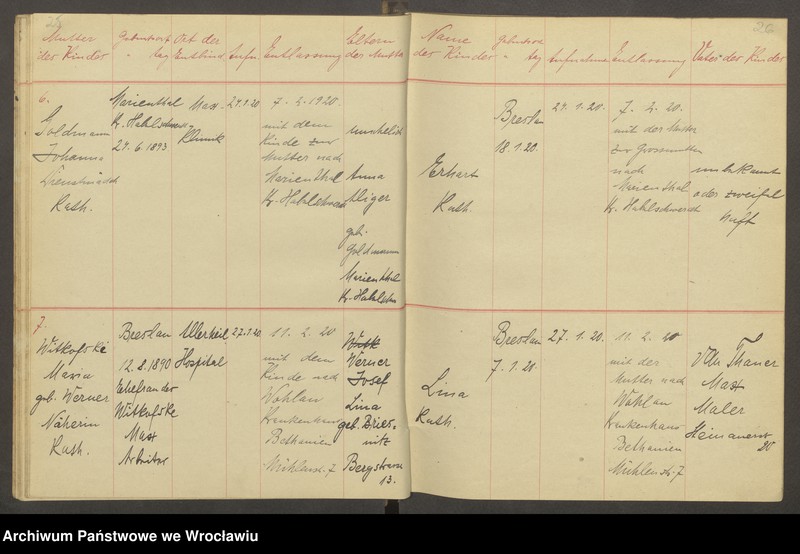 26
Mutter
der Kinder
Geburtsort
" tag
Ort der
Entbind.
Aufn.
Entlassung
Eltern
der Mutter
Name
der Kinder
" tag
Aufnahme
Entlassung
Vater der Kinder
6.
Goldmann
Johanna
Dienstmädch
Kath.
Marienthal
Kr. Habelschwerdt
24.6.1893
Klinik
24.1.20
7. 2. 1920.
mit dem
Kinde zur
Mutter nach
Marienthal
Kr. Habelschwerdt
unehelich
Anna
geb.
Goldmann
Marienthal
Kr. Habelschw
Erhart
Kath.
Breslau
18.1.20.
24.1.20.
7. 2. 20.
mit der Mutter
zur Grossmutter
nach
Marienthal
Kr. Habelschwerdt
unbekannt
oder zweifel
haft
7.
Witkofske
Maria
geb. Werner
Näherin
Kath.
Breslau
12.8.1890
Ehefrau des
Witkofske
Max
Arbeiter
Allerheil
Hospital
27.1.20
11. 2. 20
mit dem
Kinde nach
Wohlau
Krankenhaus
Bethanien
Mühlenstr. 7
Werner
Josef
Lina
geb. Bries-
nitz
Bergstrasse
13.
Lina
Kath.
Breslau
7.1.20.
27.1.20.
11. 2. 20
mit der
Mutter nach
Wohlau
Krankenhaus
Bethanien
Mühlenstr. 7
Max
Maler
20
Archiwum Państwowe we Wrocławiu